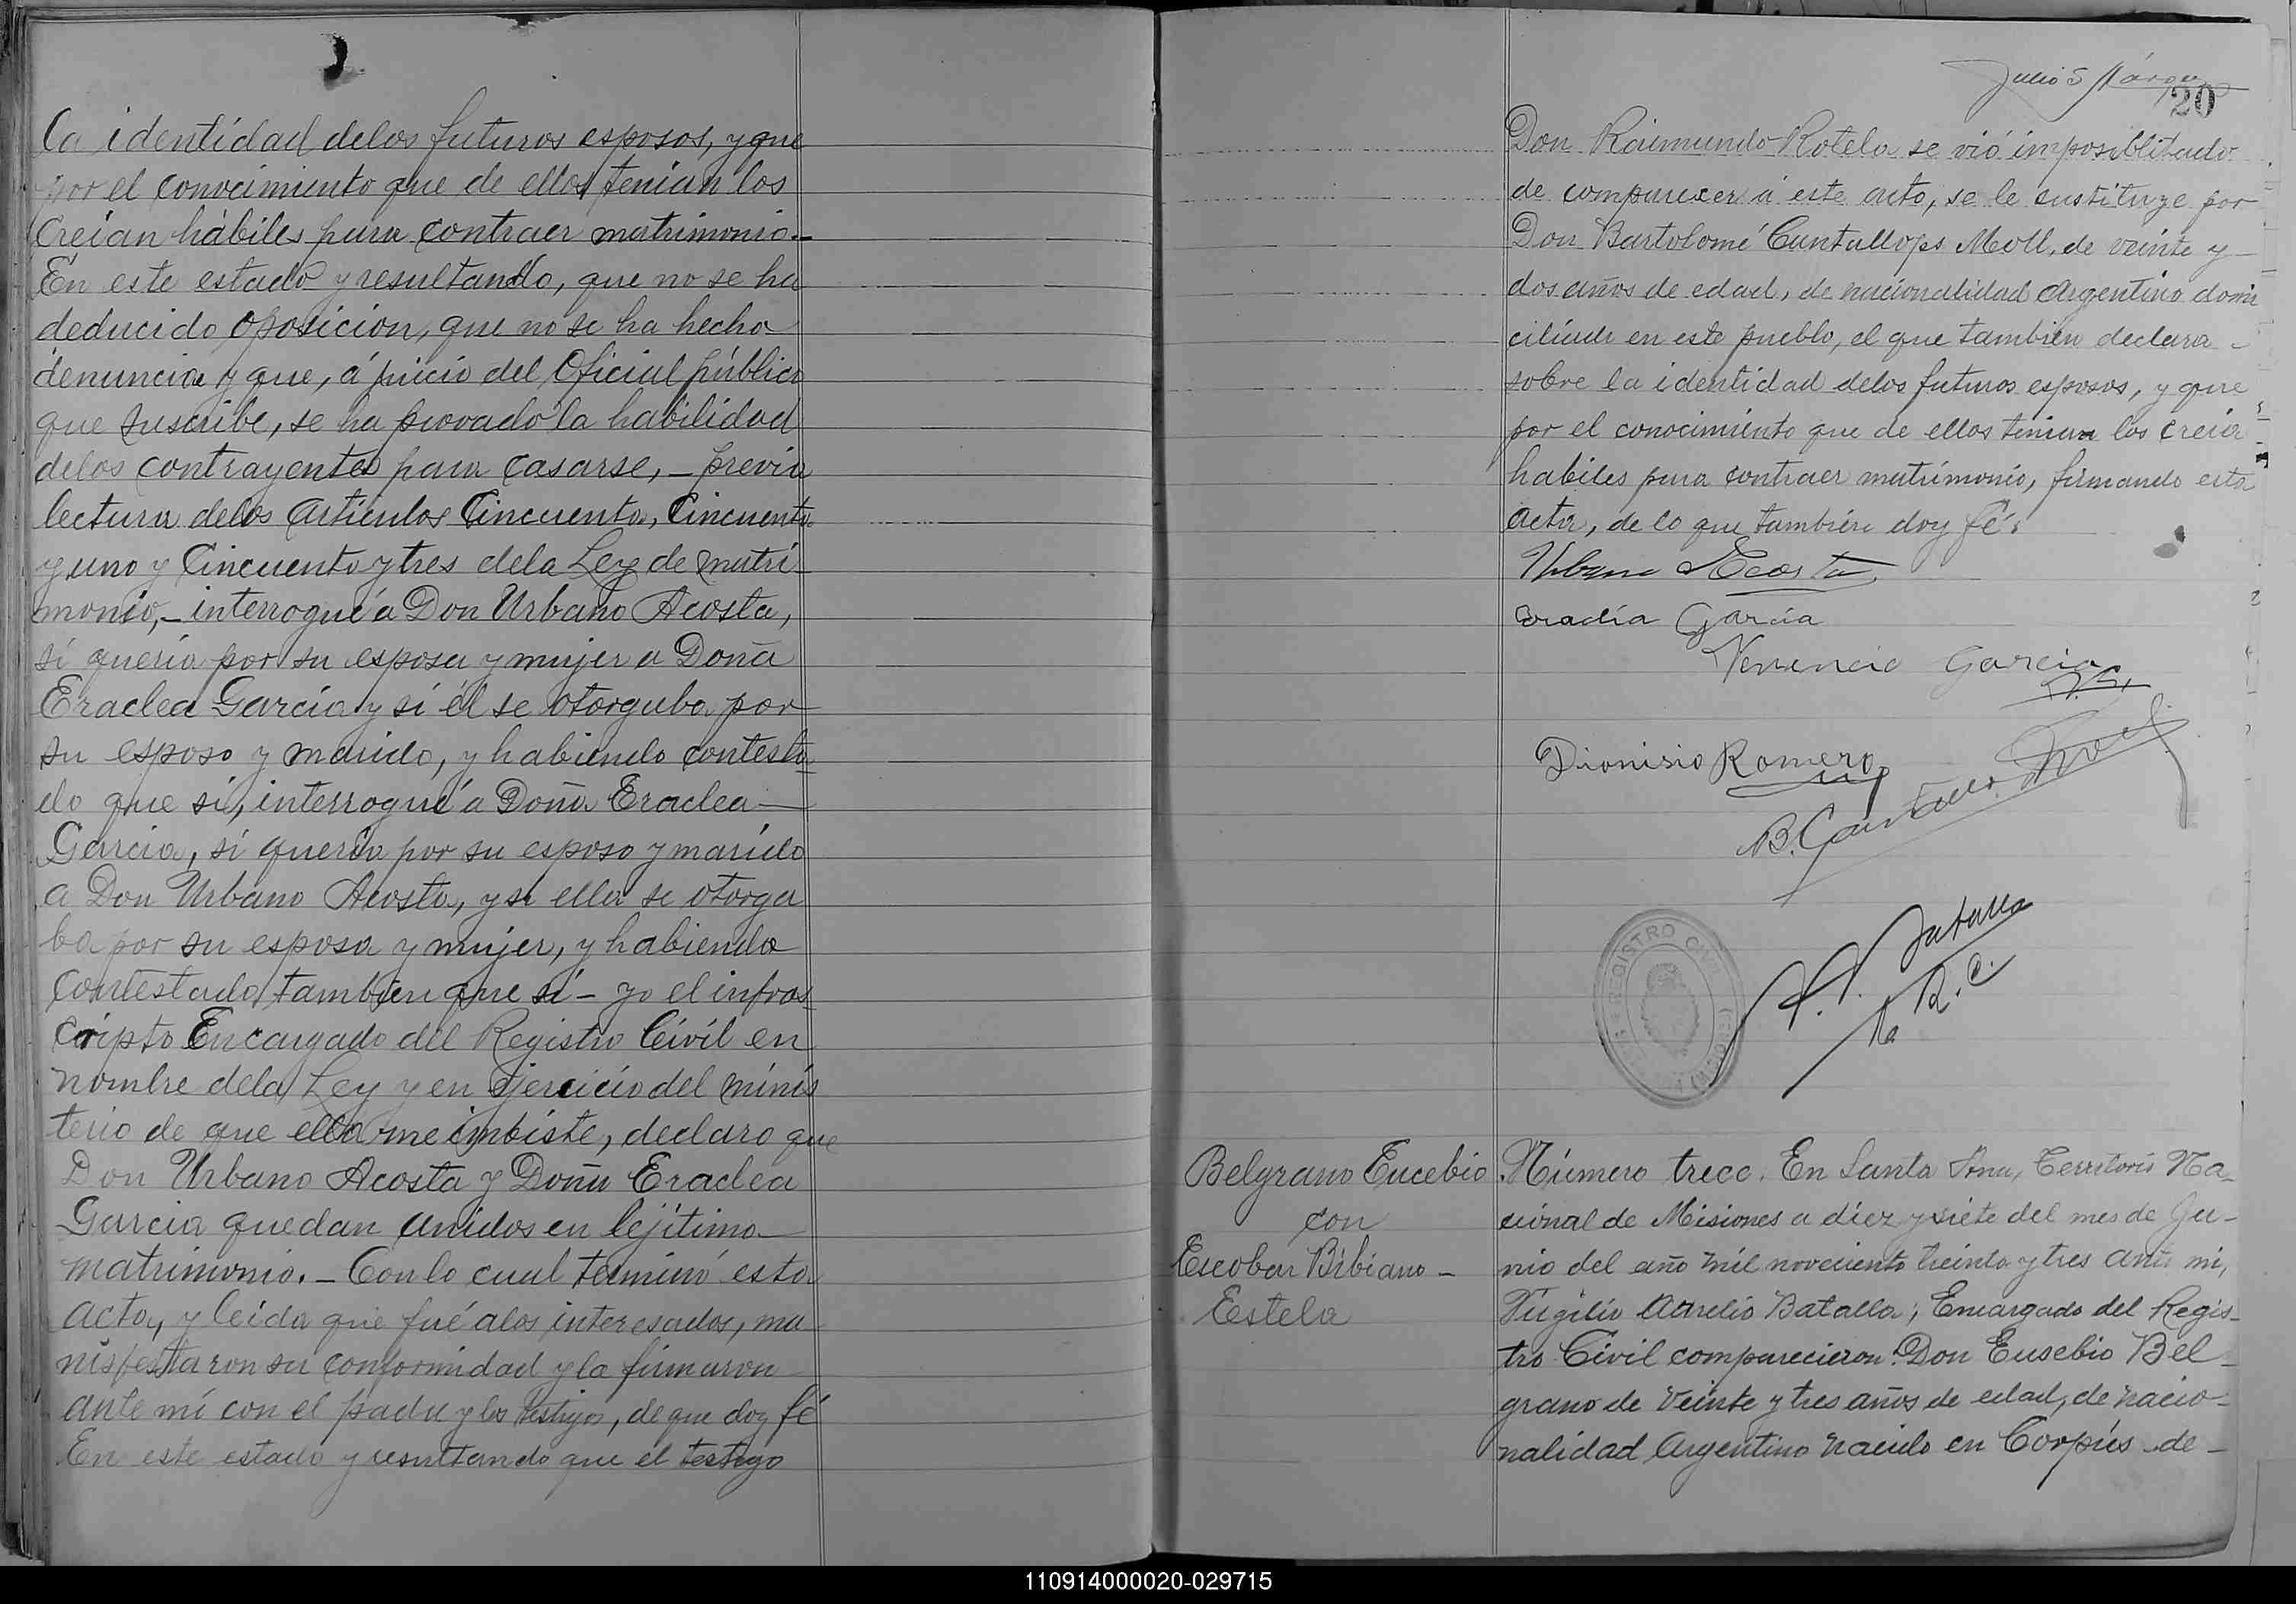 la identidad delos futuros esposos, y que
por el conocimiento que de ellos tenian los
creían hábiles para contraer matrimonio.—
En este estado y resultando, que no se ha
deducido oposicion, que no se ha hecho
denuncia y que, á juicio del Oficial público
que suscribe, se ha provado la habilidad
delos contrayentes para casarse, — previa
lectura delos Artículos Cincuenta, Cincuenta
y uno y Cincuenta y tres dela Ley de matri
monio, — interrogué a Don Urbano Acosta,
si quería por su esposa y mujer a Doña
Eraclea García y si él se otorgaba por
su esposo y marido, y habiendo contesta
do que si, interrogué a Doña Eraclea —
Garcia, si queria por su esposo y marido
a Don Urbano Acosta, y si ella se otorga
ba por su esposa y mujer, y habiendo
contestado tambien que si — yo el infras
cripto Encargado del Registro Civil en
nombre dela Ley y en ejercicio del minis
terio de que ella me imbiste, declaro que
Don Urbano Acosta y Doña Eraclea
Garcia quedan unidos en lejítimo —
matrimonio. — Con lo cual terminó esta
acto, y leida que fué alos interesados, ma
nisfestaron su conformidad y la firmaron
ante mi con el padre y los testigos, de que doy fé
En este estado y resultando que el testigo
Julio S
20
Don Raimundo Rotela se vió imposiblitado
de comparecer á este acto, se le sustituye por
Don Bartolomé Cantallops Moll, de veinte y —
dos años de edad, de nacionalidad Argentino domi
ciliado en este pueblo, el que tambien declara —
sobre la identidad delos futuros esposos, y que
por el conocimiento que de ellos tenian los creia
habiles para contraer matrimonio, firmando esta
acta, de lo que tambien doy fé.
Urbano Acosta
Eradía García
Venencio Garcia
Dionisio Romero
B. Cantallops Moll
Batalla
R. C.
REGISTRO CIVIL
Belgrano Eucebio
con
Escobar Bibiano —
Estela
Número trece. En Santa Ana, Territorio Na-
cional de Misiones a diez y siete del mes de Ju-
nio del año mil noveciento treinta y tres ante mi,
Virgilio Aurelio Batalla, Encargado del Regis-
tro Civil comparecieron: Don Eusebio Bel-
grano de veinte y tres años de edad, de nacio-
nalidad Argentino nacido en Corpús de —
110914000020-029715